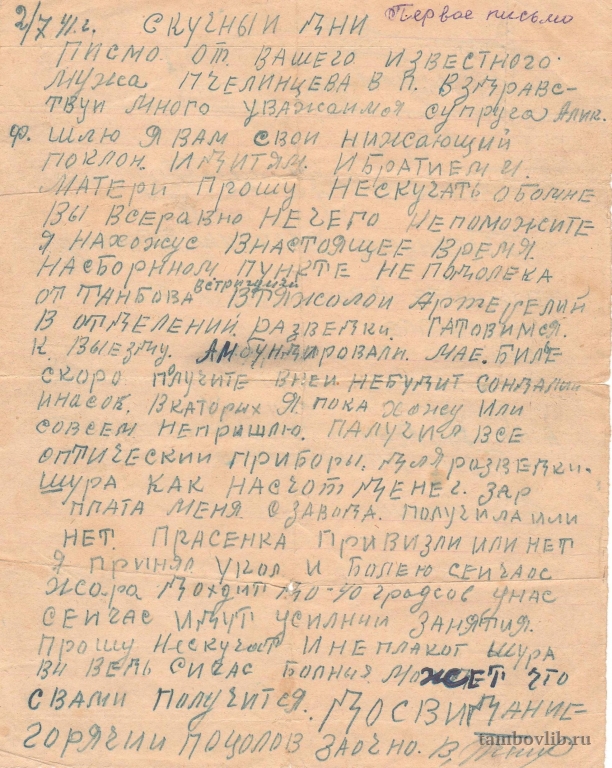 2/7 41 г. СКУЧНЫИ ДНИ Первое письмо
ПИСМО ОТ ВАШЕГО ИЗВЕСТНОГО
МУЖА ПЧЕЛИНЦЕВА В П. ВЗДРАВС-
ТВУИ МНОГО УВАЖАИМАЯ СУПРУГА АЛИК.
Ф. ШЛЮ Я ВАМ СВОИ НИЖАЮЩИЙ
ПОКЛОН. ИДИТЯМ. И БРАТИЕМ И.
МАТЕРИ ПРОШУ НЕСКУЧАТЬ ОБОМНЕ
ВЫ ВСЕРАВНО НЕЧЕГО НЕПОМОЖИТЕ
Я НАХОЖУС ВНАСТОЯЩЕЕ ВРЕМЯ.
НАСБОРНОМ ПУНКТЕ НЕПОДОЛЕКА
ОТ ТАНБОВА ВТЯЖОЛОИ
В ОТДЕЛЕНИЙ РАЗВЕДКИ. ГАТОВИМСЯ.
К ВЫЕЗДУ. МАЕ. БИЛЕ
СКОРО ПОЛУЧИТЕ ВНЕИ НЕБУДИТ
ИНАСОК. ВКАТОРИХ Я ПОКА ХОЖУ ИЛИ
СОВСЕМ НЕПРИШЛЮ. ПАЛУЧИЛ ВСЕ
ОПТИЧЕСКИИ ПРИБОРЫ. ДЛЯ РАЗВЕДКИ.
ШУРА КАК НАСЧОТ ДЕНЕГ. ЗАР
ПЛАТА МЕНЯ СЗАВОДА. ПОЛУЧИЛА ИЛИ
НЕТ. ПРАСЕНКА ПРИВИЗЛИ ИЛИ НЕТ
Я ПРИНЯЛ УКОЛ И БОЛЕЮ СЕИЧАС
ЖАРА ДОХОДИТ ДО-40 ГРАДСОВ УНАС
СЕЙЧАС ИДУТ УСИЛНИИ ЗАНЯТИЯ.
ПРОШУ НЕСКУЧАТ И НЕПЛАКАТ ШУРА
ВИ ВЕТЬ СИЧАС МОЖЕТ ЧТО
СВАМИ ПОЛУЧИТСЯ. ДОСВИДАНИЕ-
ГОРЯЧИИ ПОЦОЛОВ ЗАОЧНО.
tambovlib.ru